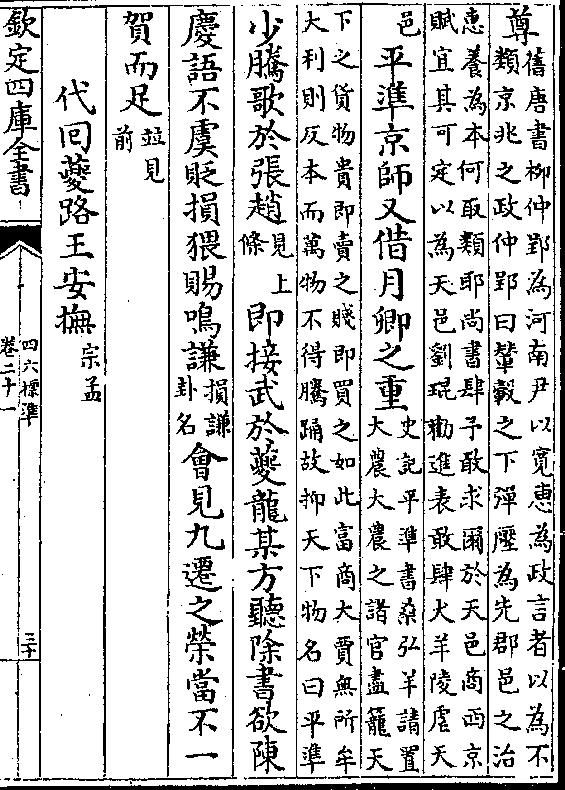 尊舊唐書柳仲郢為河南尹以寛惠為政言者以為不
類京兆之政仲郢曰輦轂之下彈壓為先郡邑之治
惠養為本何取類耶尚書肆予敢求爾於天邑商西京
賦宜其可定以為天邑劉琨勸進表敢肆犬羊陵虐天
邑平準京師又借月卿之重史記平準書桑弘羊請置
大農大農之諸官盡籠天
下之貨物貴即賣之賤即買之如此富商大賈無所牟
大利則反本而萬物不得騰踊故抑天下物名曰平準
少騰歌於張趙見上
條即接武於夔龍某方聽除書欲陳
慶語不虞貶損猥賜鳴謙損謙
卦名會見九遷之榮當不一
賀而足並見
前
代回夔路王安撫宗孟
欽定四庫全書
四六標準
卷二十一
三十